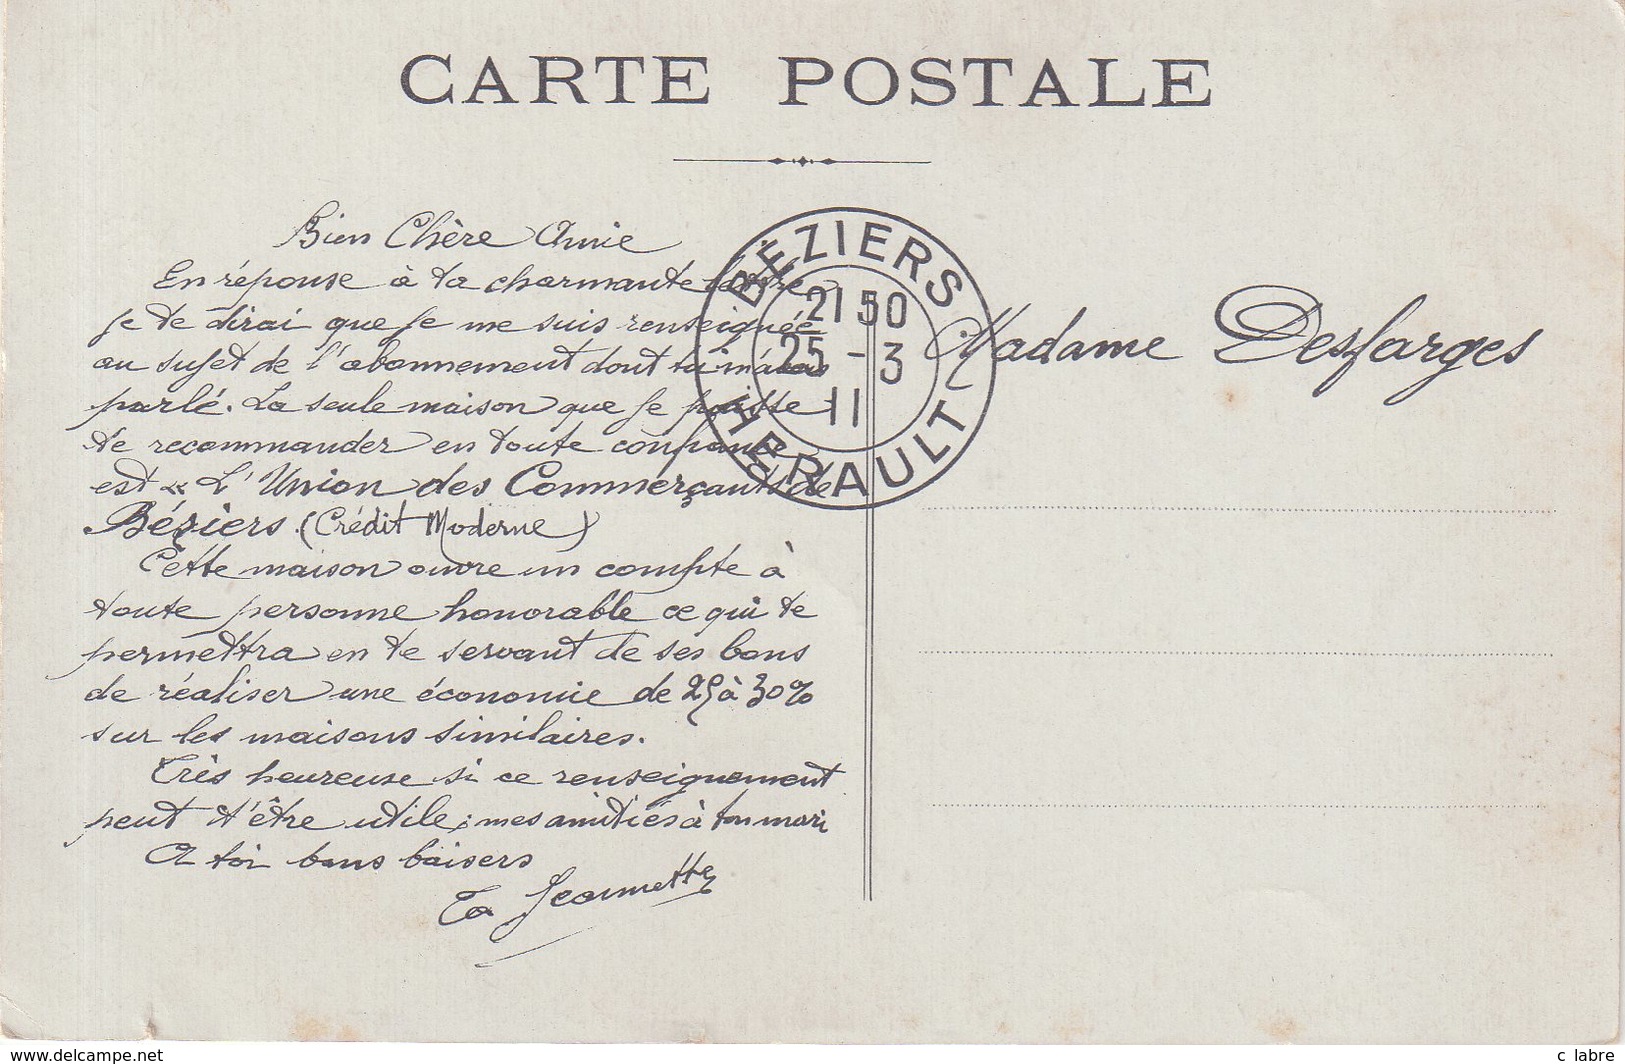 CARTE POSTALE
Bien Chère Amie
En réponse à ta charmante lettre
je te dirai que je me suis renseignée
au sujet de l'abonnement dont tu m'avais
parlé. La seule maison que je puisse
te recommander en toute confiance
est « L'Union des Commerçants de
Béziers (Crédit Moderne)
Cette maison ouvre un compte à
toute personne honorable ce qui te
permettra en te servant de ses bons
de réaliser une économie de 25 à 30%
sur les maisons similaires.
Très heureuse si ce renseignement
peut t'être utile; mes amitiés à ton mari
A toi bons baisers
Ta Jeannette
BÉZIERS
21 50
25 - 3
11
HERAULT
Madame Desfarges
www.delcampe.net
c labre